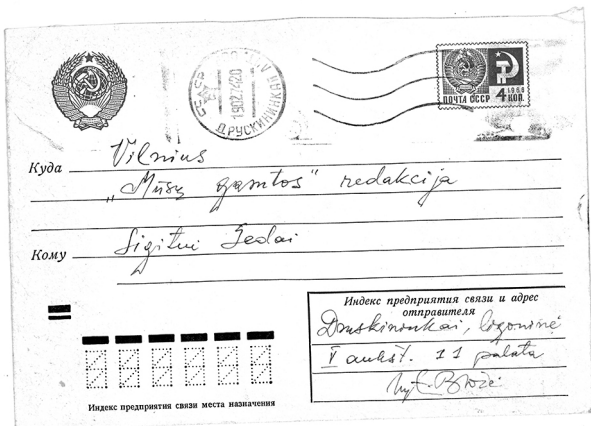 СССР
19 02 74 20
ДРУСКИНИНКАЙ
ПОЧТА СССР 4 КОП.
1966
Куда Vilnius
„Mūsų gamtos" redakcija
Кому Sigitui Gedai
Индекс предприятия связи и адрес
отправителя
Druskininkai, ligoninė
V aukšt. 11 palata
Индекс предприятия связи места назначения